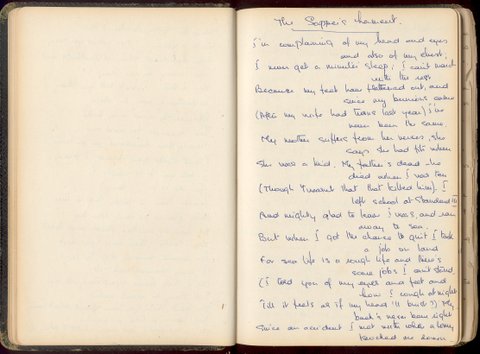 The Sapper's Lament.
I'm complaining of my head and eyes
and also of my chest,
I never get a minutes sleep, I can't march
with the rest
Because my feet have flattened out, and
since my bunions came
(After my wife had twins last year) I've
never been the same.
My mother suffers from her nerves, she
says she had fits when
She was a kid. My father's dead – he
died when I was ten
(Though I wasn't that that killed him). I
left school at Standard III
And mighty glad to leave I was, and ran
away to sea.
But when I got the chance to quit I took
a job on land
For sea life is a rough life and there's
some jobs I can't stand.
(I told you of my eyes and feet and
how I cough at night
Till it feels as if my head 'll bust?) My
back's never been right
Since an accident I met with when a lorry
knocked me down